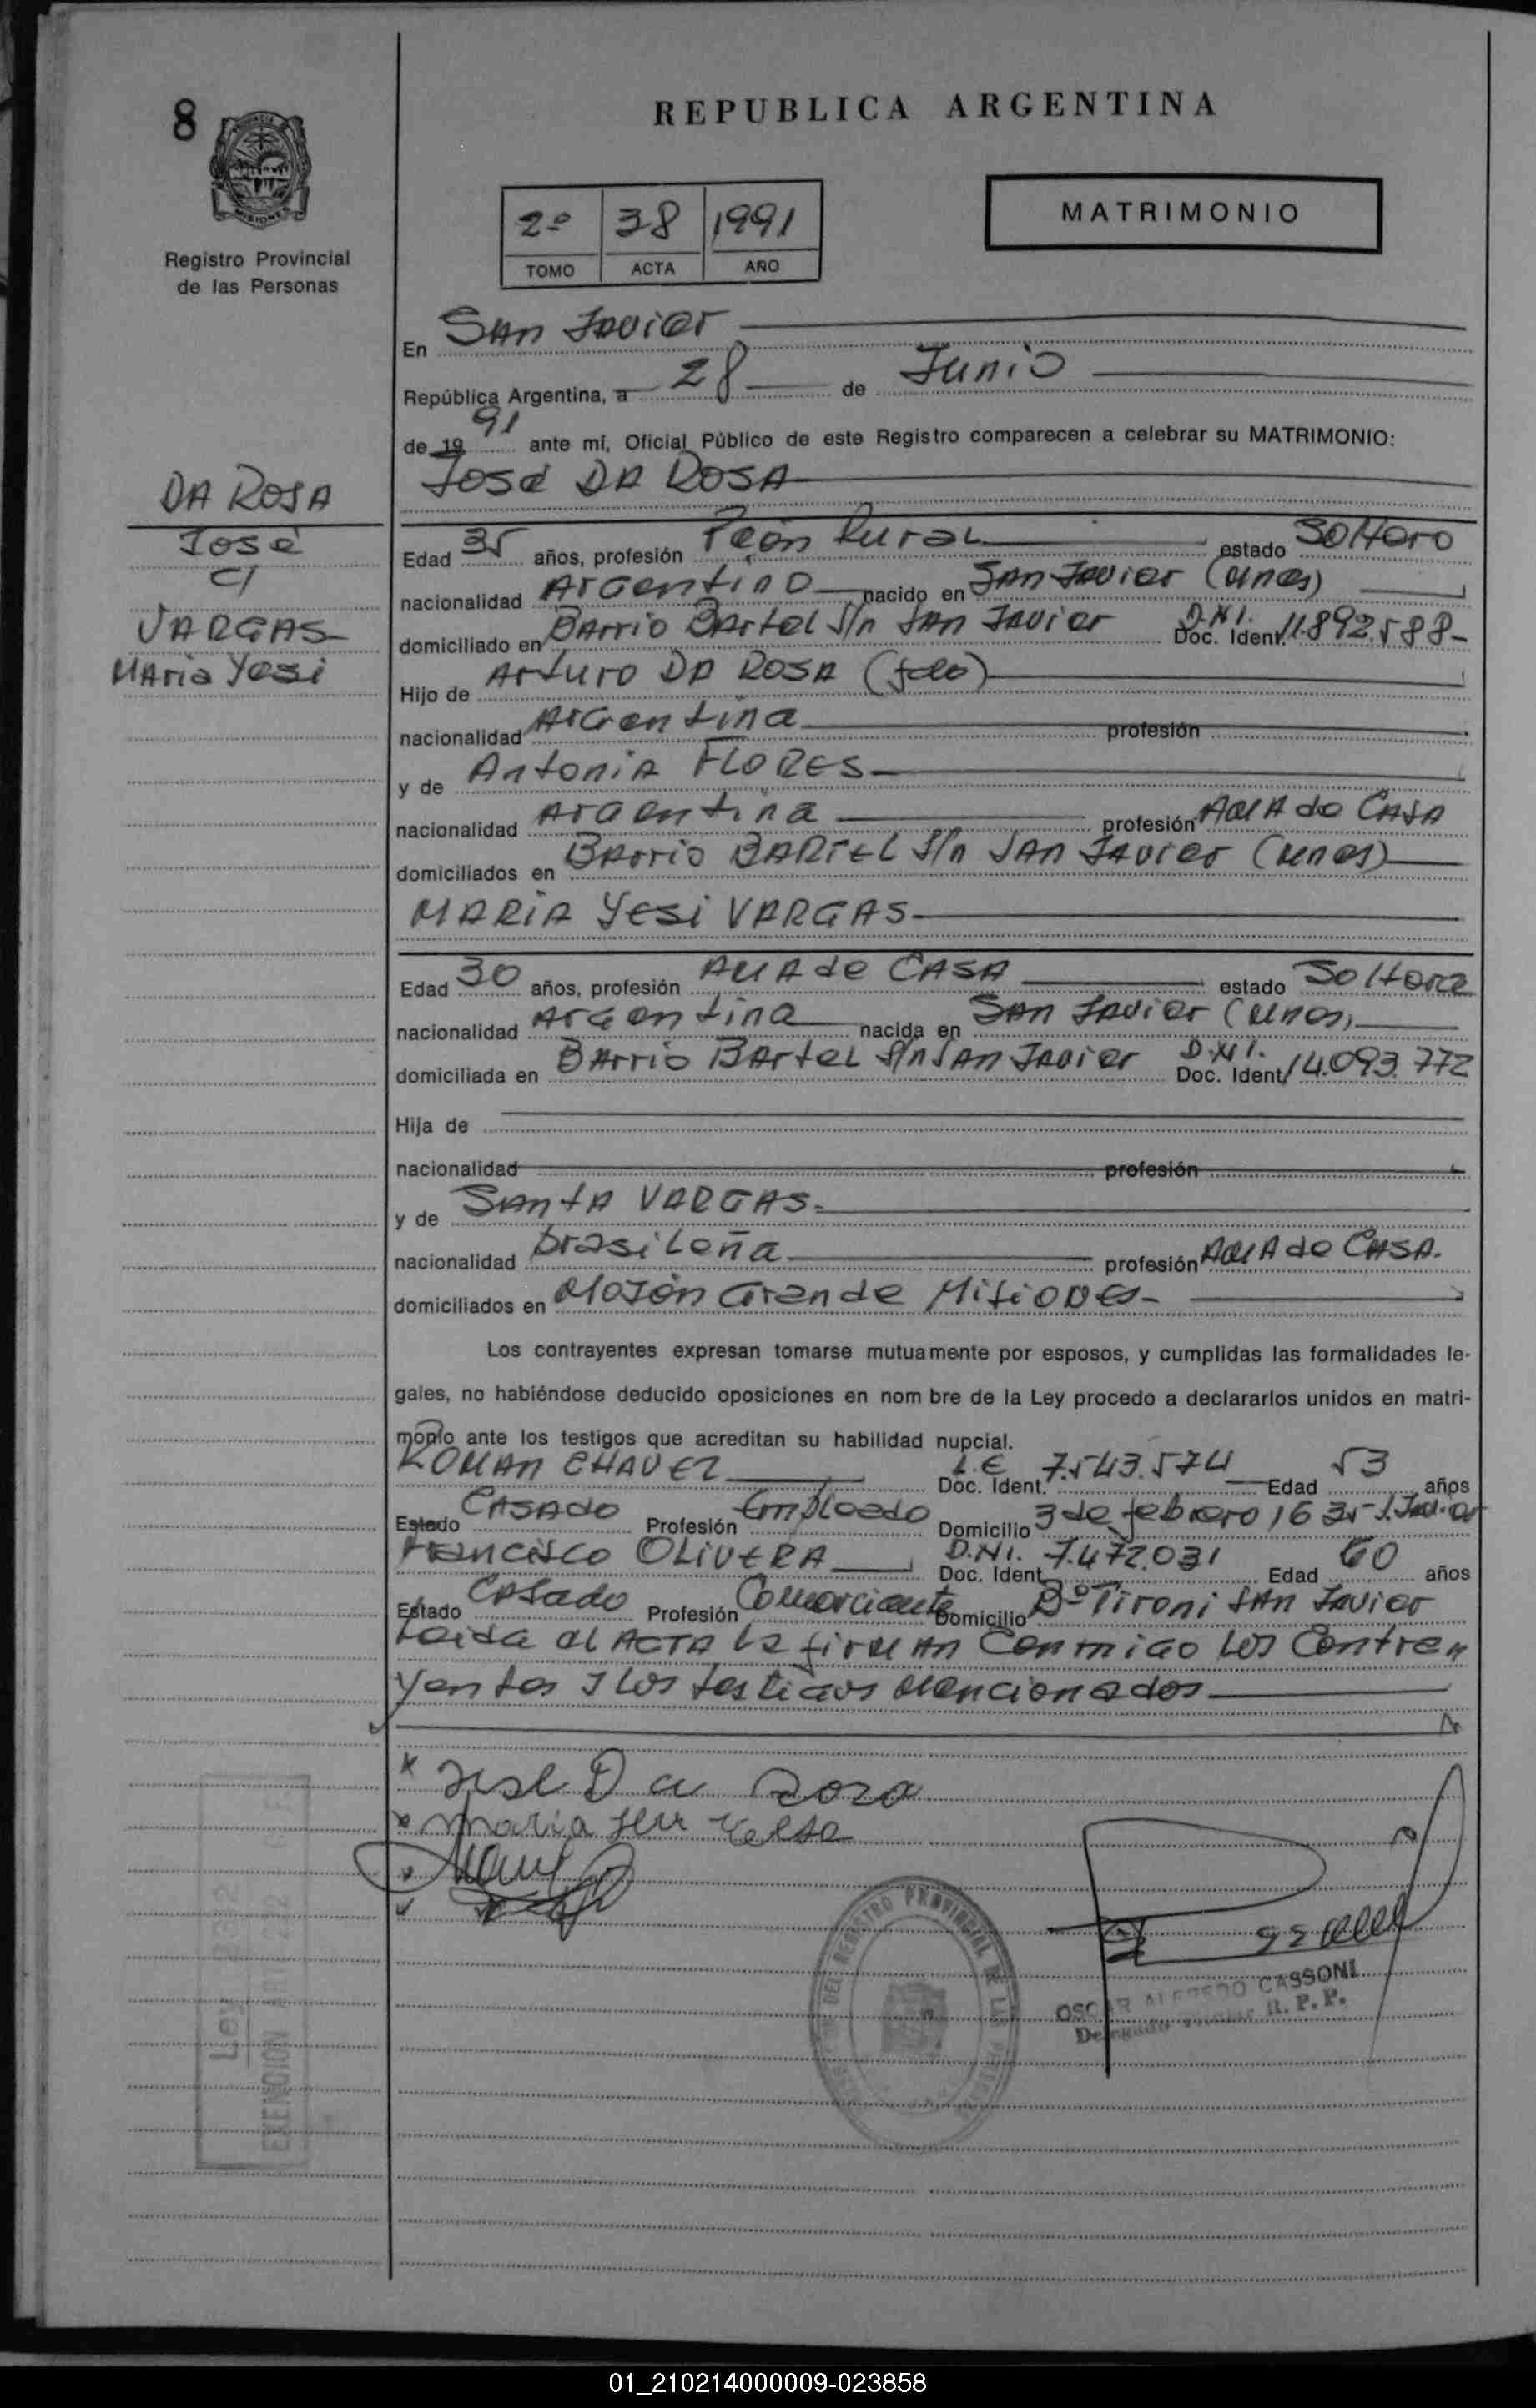 8
REPUBLICA ARGENTINA
MISIONES
Registro Provincial
de las Personas
2º 38 1991
TOMO ACTA AÑO
MATRIMONIO
En San Javier
República Argentina, a 28 de Junio
de 1991 ante mí, Oficial Público de este Registro comparecen a celebrar su MATRIMONIO:
José DA ROSA
DA ROSA
José
c/
VARGAS
Maria Yesi
Edad 35 años, profesión Peón Rural estado Soltero
nacionalidad Argentino nacido en San Javier (Mnes)
domiciliado en Barrio Bartel S/n San Javier D.N.I. Doc. Ident. 11.892.588-
Hijo de Arturo DA ROSA (fdo)
nacionalidad Argentina profesión
y de Antonia FLORES
nacionalidad Argentina profesión Ama de Casa
domiciliados en Barrio BARTEL S/n San Javier (Mnes)
MARIA Yesi VARGAS
Edad 30 años, profesión Ama de CASA estado Soltera
nacionalidad Argentina nacida en San Javier (Mnes)
domiciliada en Barrio Bartel S/n San Javier D.N.I. Doc. Ident. 14.093.772
Hija de
nacionalidad profesión
y de Santa VARGAS.
nacionalidad brasileña profesión Ama de CASA.
domiciliados en Mojón Grande Misiones-
Los contrayentes expresan tomarse mutuamente por esposos, y cumplidas las formalidades le-
gales, no habiéndose deducido oposiciones en nom bre de la Ley procedo a declararlos unidos en matri-
monio ante los testigos que acreditan su habilidad nupcial.
ROMAN CHAVEZ L.E Doc. Ident. 7.543.574 Edad 53 años
Estado CASADO Profesión Empleado Domicilio 3 de febrero 1635 S. Javier
Francisco OLIVERA D.N.I. Doc. Ident. 7.472.031 Edad 60 años
Estado Casado Profesión Comerciante Domicilio Bº Tironi San Javier
Leida el ACTA la firman conmigo los contra
yentes y los testigos mencionados
José Da Roza
maria
OSCAR ALFREDO CASSONI
R. P. P.
DEL REGISTRO PROVINCIAL DE LAS
Ley
EXENCION
01_210214000009-023858